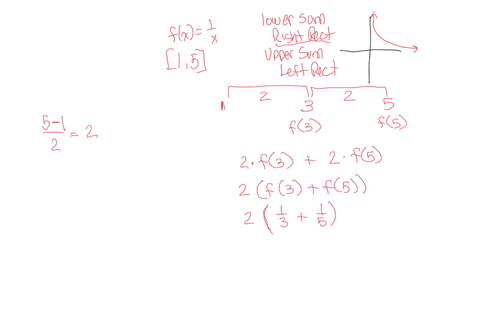 f(x) = 1/x
[1,5]
lower Sum
Right Rect
Upper Sum
Left Rect
2 2
1 3 5
f(3) f(5)
5-1/2 = 2
2 · f(3) + 2 · f(5)
2 (f(3) + f(5))
2 (1/3 + 1/5)